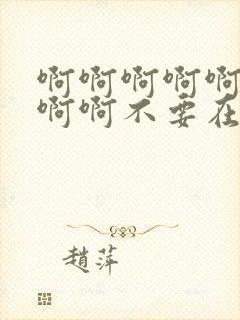 啊啊啊啊啊
啊啊不要在
趙萍